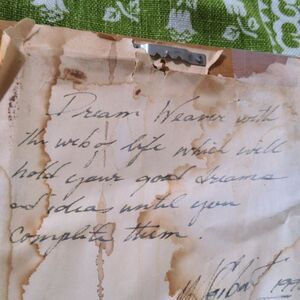 Dream Weaver with
the web of life which will
hold your good dreams
and ideas until you
complete them.